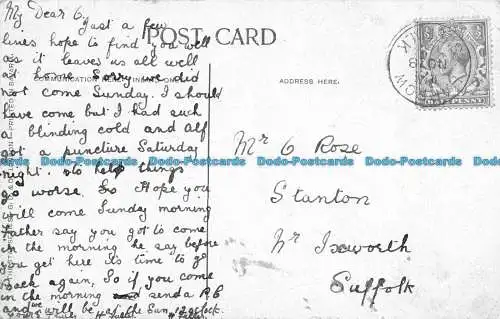 My Dear C.
Just a few
lines hope to find you well
as it leaves us all well
at home. Sorry we did
not come Sunday. I should
have come but I had such
a blinding cold and Alf
got a puncture Saturday
night. to help things
go worse. So Hope you
will come Sunday morning
Father say you got to come
in the morning he say before
you get here its time to go
back again, So if you come
in the morning send a P.C
and we will be at the Sun, 12 o'clock.
POST CARD
COMMUNICATION
ADDRESS HERE.
HALFPENNY
Mr C Rose
Stanton
Nr Ixworth
Suffolk
Dodo-Postcards Dodo-Postcards Dodo-Postcards Dodo-Postcards